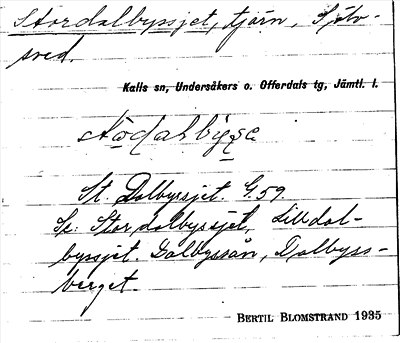 Stordalbyssjet, tjärn, Sjöv-
sved.
Kalls sn, Undersåkers o. Offerdals tg, Jämtl. l.
St. Dalbyssjet. G. 59.
Se: Stordalbyssjet, Lilldal-
byssjet. Dalbyssån, Dalbyss-
berget.
BERTIL BLOMSTRAND 1935